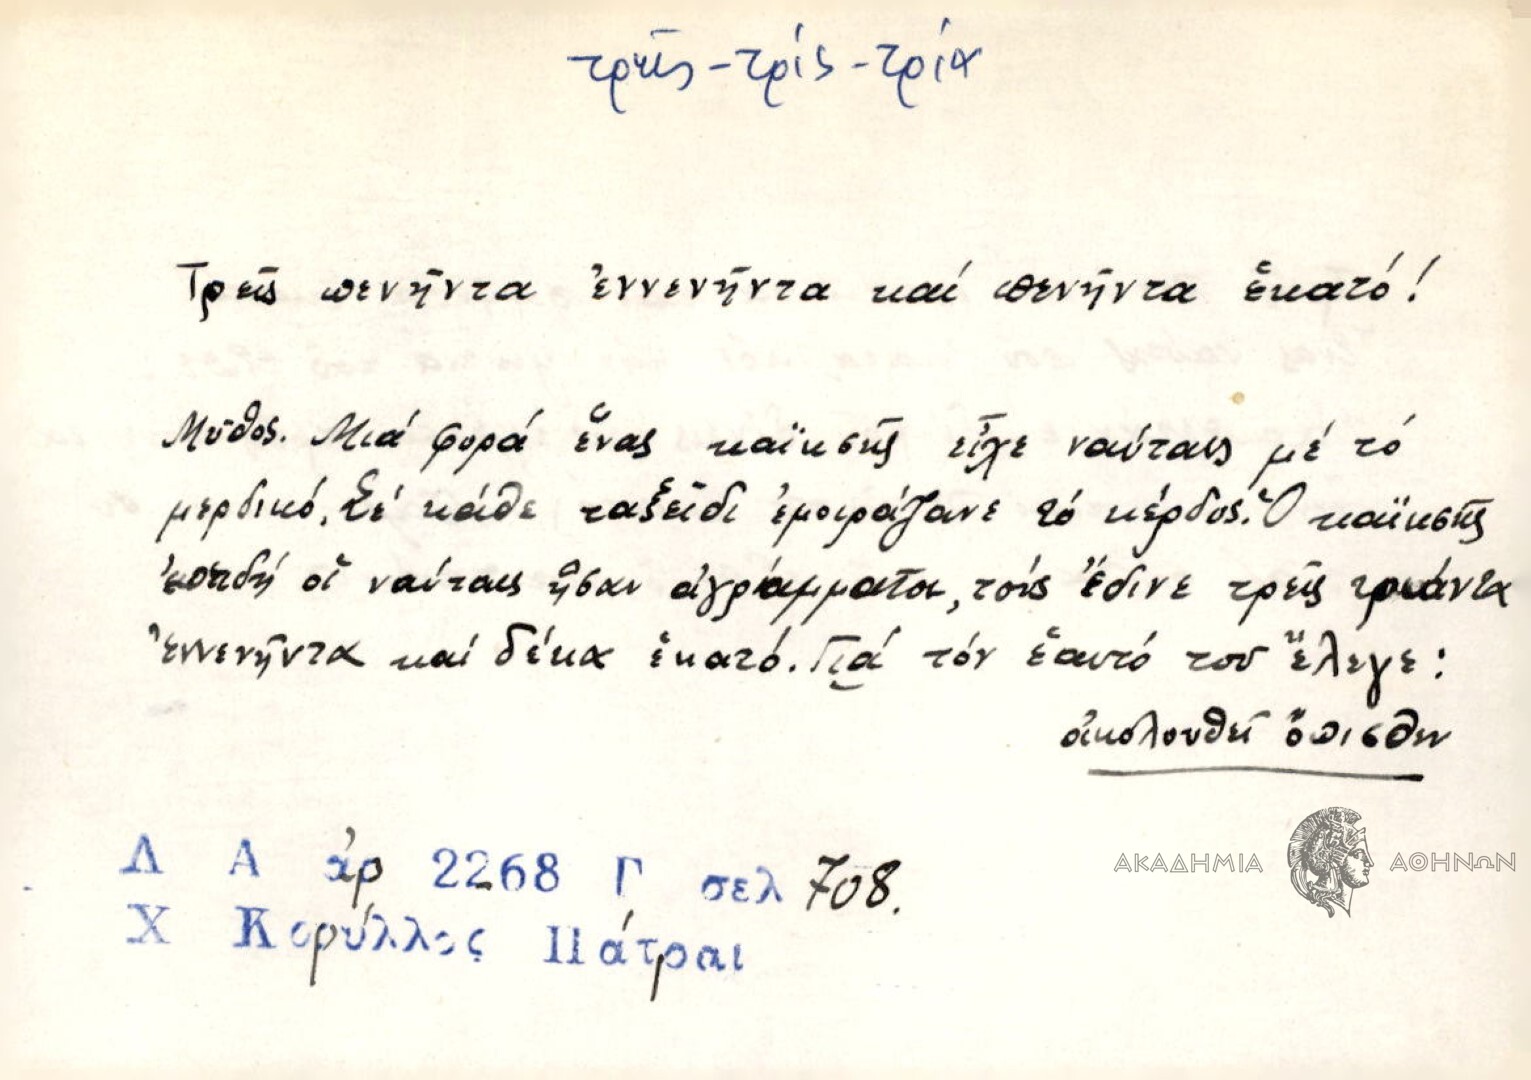 τρεῖς - τρίς - τρία
Τρεῖς πενῆντα ἐννενῆντα καί πενῆντα ἑκατό!
Μῦθος. Μιά φορά ἕνας καϊκσῆς εἶχε ναύταις μέ τό
μερδικό. Σέ κάθε ταξεῖδι ἐμοιράζανε τό κέρδος. Ὁ καϊκσῆς
ἐπειδή οἱ ναύταις ἦσαν ἀγράμματοι, τούς ἔδινε τρεῖς τριάντα
ἐννενῆντα καί δέκα ἑκατό. Γιά τόν ἑαυτό του ἔλεγε:
ἀκολουθεῖ ὄπισθεν
Λ Α ἀρ 2268 Γ σελ 708.
Χ Κορύλλος Πάτραι
ΑΚΑΔΗΜΙΑ ΑΘΗΝΩΝ